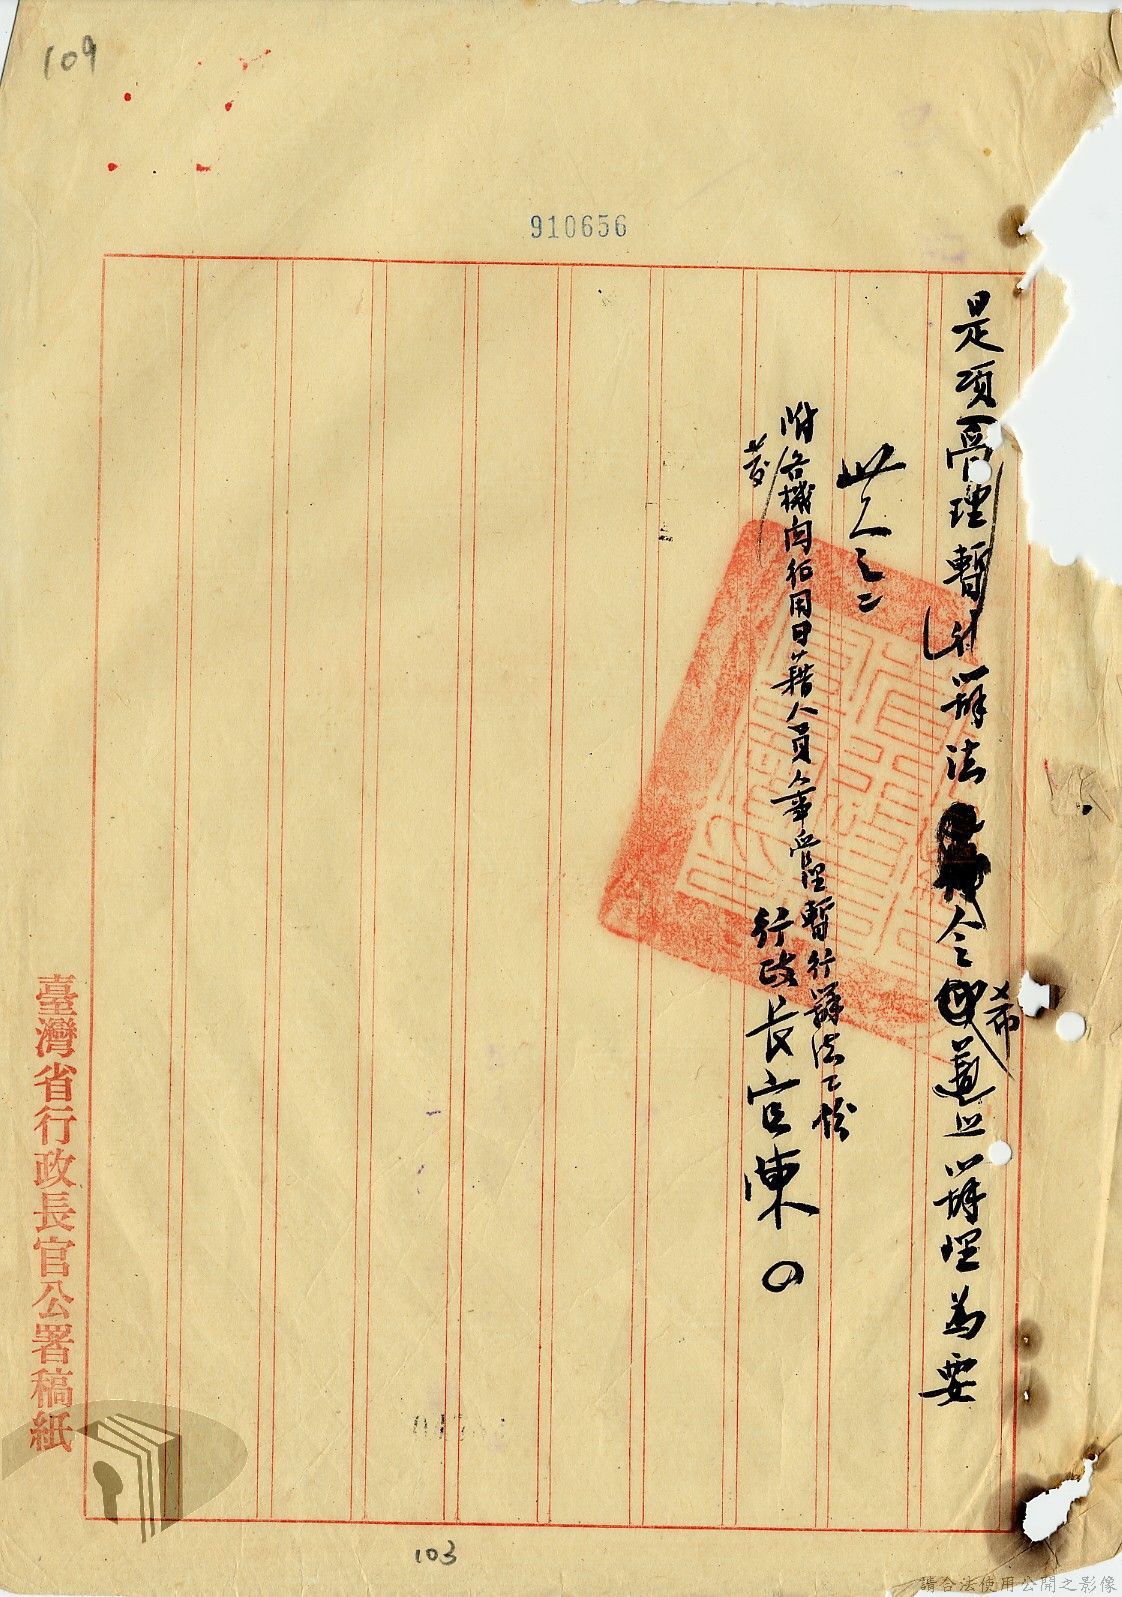 109
910656
是項管理暫行辦法
令
希
遵照辦理為要
附各機關征用日籍人員人事管理暫行辦法乙份
行政長官陳〇
臺灣省行政長官公署稿紙
103
請合法使用公開之影像